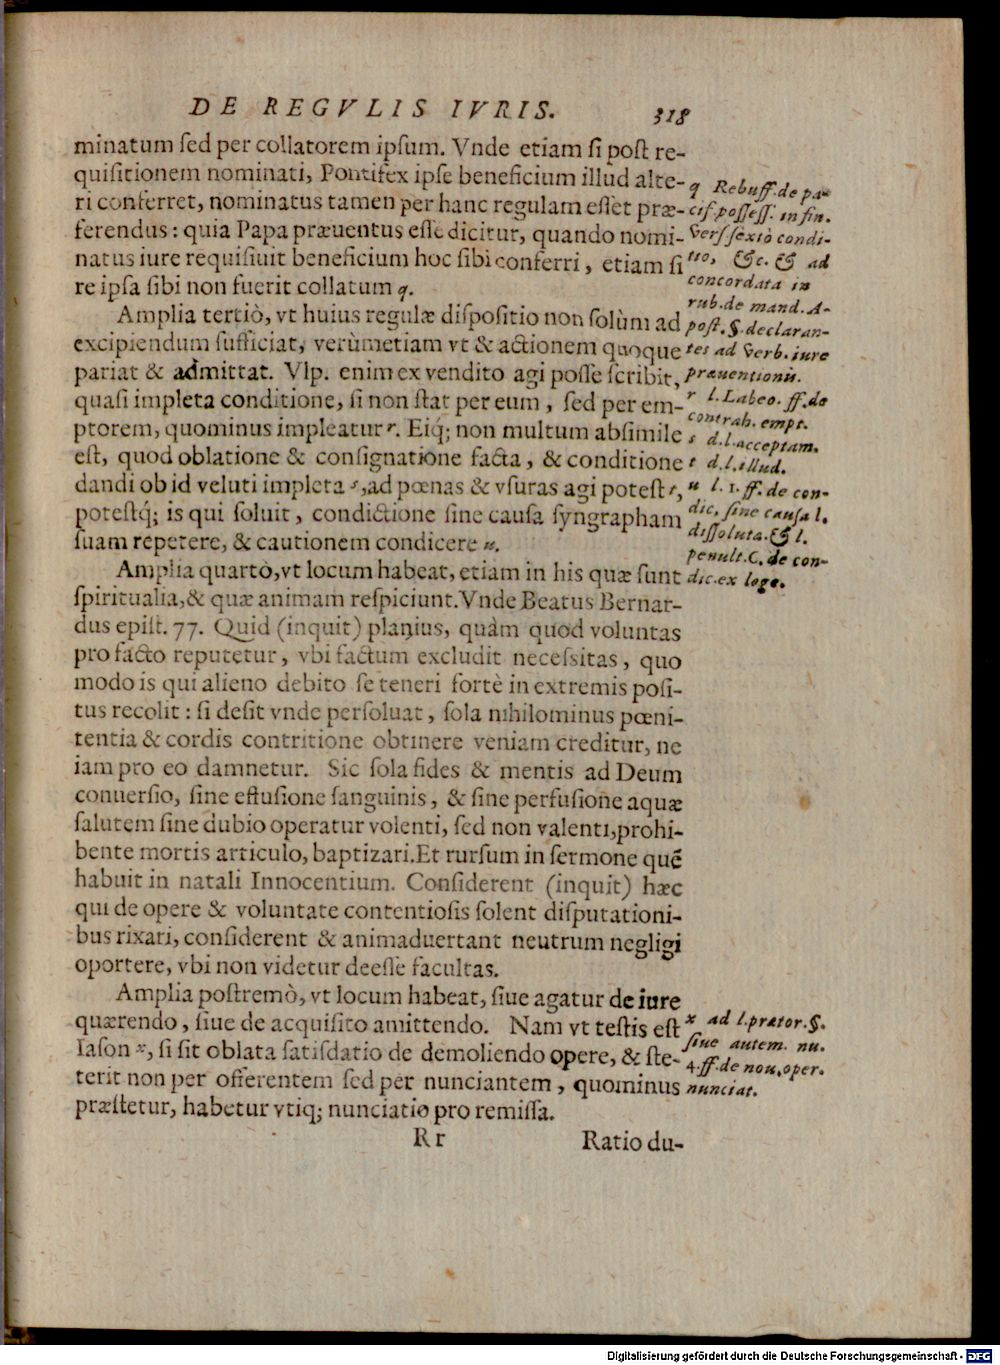 DE REGVLIS IVRIS. 318
minatum ſed per collatorem ipſum. Vnde etiam ſi poſt re-
quiſitionem nominati, Pontifex ipſe beneficium illud alte-
ri conferret, nominatus tamen per hanc regulam eſſet præ-
ferendus: quia Papa præuentus eſſe dicitur, quando nomi-
natus iure requiſiuit beneficium hoc ſibi conferri, etiam ſi
re ipſa ſibi non fuerit collatum q.
Amplia tertiò, vt huius regulæ diſpoſitio non ſolùm ad
excipiendum ſufficiat, verùmetiam vt & actionem quoque
pariat & admittat. Vlp. enim ex vendito agi poſſe ſcribit,
quaſi impleta conditione, ſi non ſtat per eum, ſed per em-
ptorem, quominus impleatur r. Eiq́; non multum abſimile
eſt, quod oblatione & conſignatione facta, & conditione
dandi ob id veluti impleta s, ad pœnas & vſuras agi poteſt t,
poteſtq́; is qui ſoluit, condictione ſine cauſa ſyngrapham
ſuam repetere, & cautionem condicere u.
Amplia quartò, vt locum habeat, etiam in his quæ ſunt
ſpiritualia, & quæ animam reſpiciunt. Vnde Beatus Bernar-
dus epiſt. 77. Quid (inquit) planius, quàm quod voluntas
pro facto reputetur, vbi factum excludit neceſsitas, quo
modo is qui alieno debito ſe teneri fortè in extremis poſi-
tus recolit: ſi deſit vnde perſoluat, ſola nihilominus pœni-
tentia & cordis contritione obtinere veniam creditur, ne
iam pro eo damnetur. Sic ſola fides & mentis ad Deum
conuerſio, ſine effuſione ſanguinis, & ſine perfuſione aquæ
ſalutem ſine dubio operatur volenti, ſed non valenti, prohi-
bente mortis articulo, baptizari. Et rurſum in ſermone quē
habuit in natali Innocentium. Conſiderent (inquit) hæc
qui de opere & voluntate contentioſis ſolent diſputationi-
bus rixari, conſiderent & animaduertant neutrum negligi
oportere, vbi non videtur deeſſe facultas.
Amplia poſtremò, vt locum habeat, ſiue agatur de iure
quærendo, ſiue de acquiſito amittendo. Nam vt teſtis eſt
Iaſon x, ſi ſit oblata ſatiſdatio de demoliendo opere, & ſte-
terit non per offerentem ſed per nunciantem, quominus
præſtetur, habetur vtiq; nunciatio pro remiſſa.
Rr Ratio du-
q Rebuff. de pa-
cif. poſſeſſ. in fin.
verſ ſextò condi-
tio, &c. & ad
concordata in
rub. de mand. A-
poſt. §. declaran-
tes ad verb. iure
præuentionis.
r l. Labeo. ff. de
contrah. empt.
s d. l. acceptam.
t d. l. illud.
u l. 1. ff. de con-
dic. ſine cauſa l.
diſſoluta. & l.
penult. C. de con-
dic. ex lege.
x ad l. prætor. §.
ſiue autem. nu.
4. ff. de nou. oper.
nunciat.
Digitalisierung gefördert durch die Deutsche Forschungsgemeinschaft - DFG